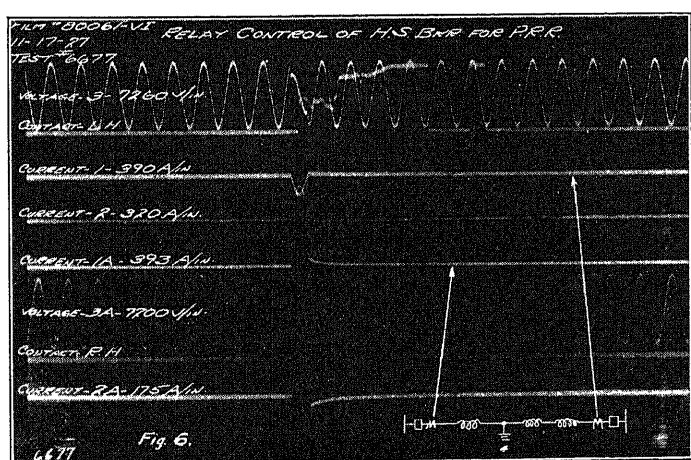 FILM #80061-VI
11-17-27
RELAY CONTROL OF H.S. BKR FOR P.R.R.
TEST #6677
VOLTAGE-3-7260 V/IN.
CONTACT-L H
CURRENT-1-390 A/IN
CURRENT-2-320 A/IN.
CURRENT-1A-393 A/IN.
VOLTAGE-3A-7200 V/IN.
CONTACT-R.H
CURRENT-2A-175 A/IN.
Fig. 6.
6677